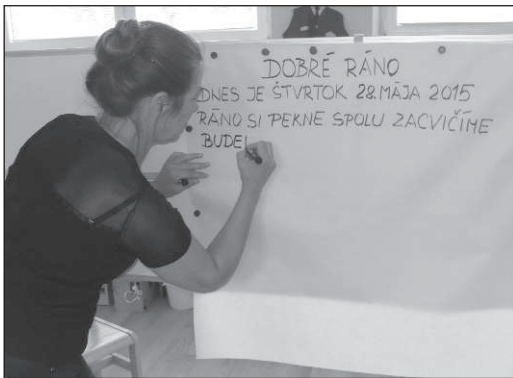 DOBRÉ RÁNO
DNES JE ŠTVRTOK 28.MÁJA 2015
RÁNO SI PEKNE SPOLU ZACVIČÍME
BUDE